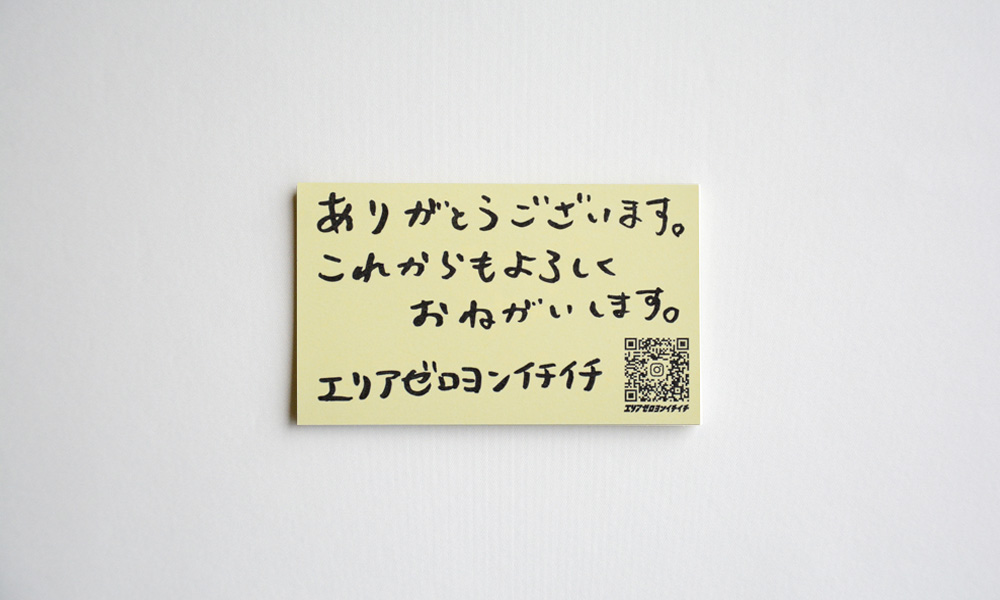 ありがとうございます。
これからもよろしく
おねがいします。
エリアゼロヨンイチイチ
エリアゼロヨンイチイチ